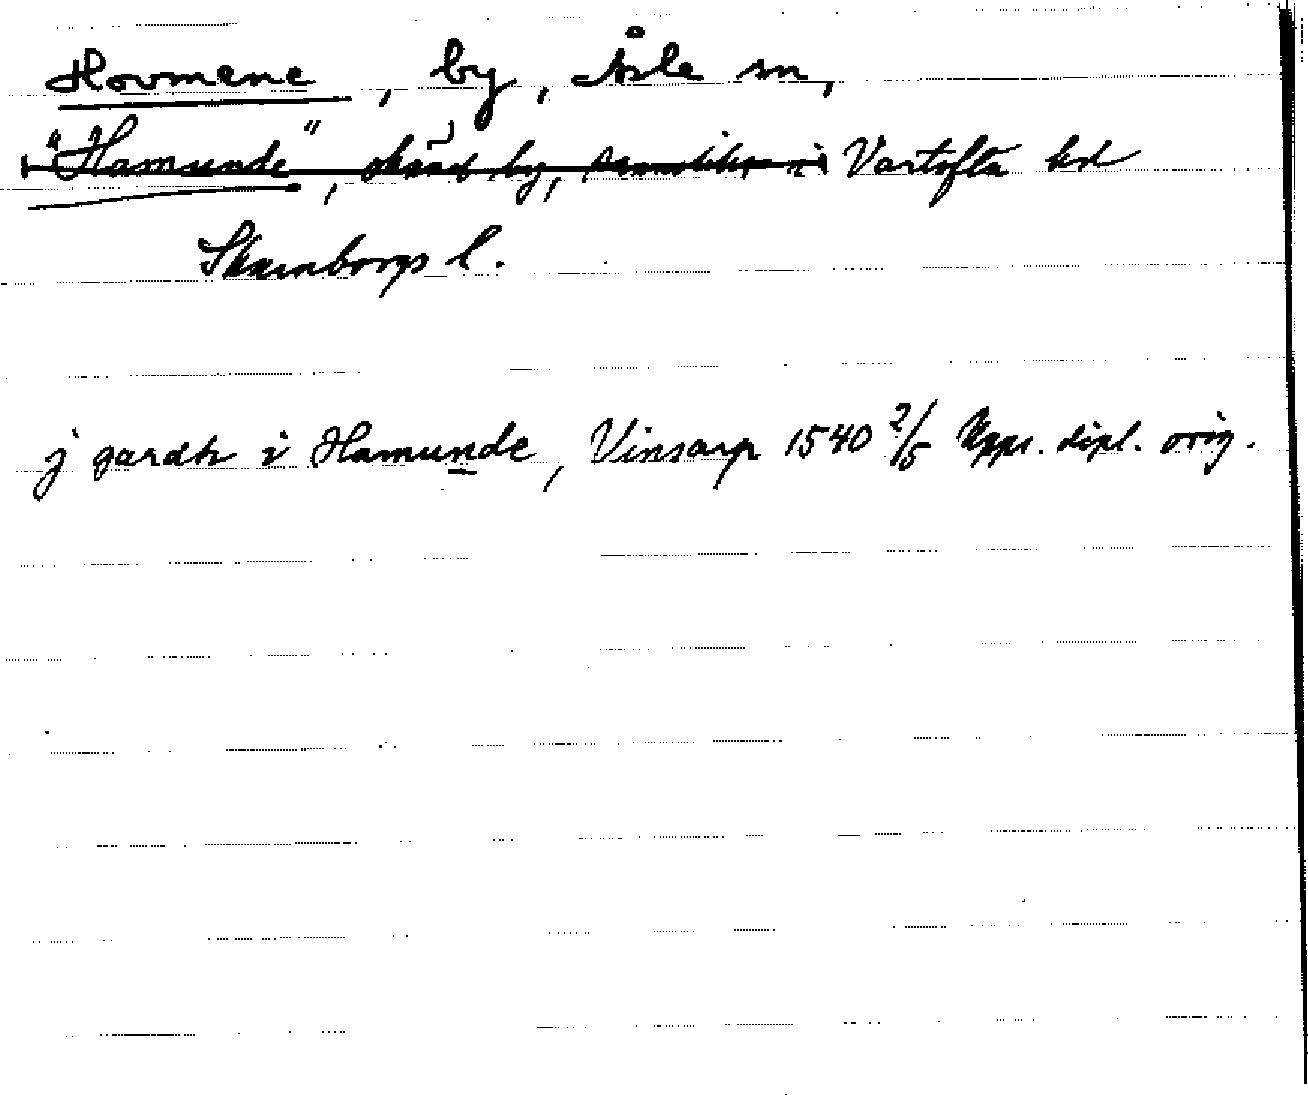 Hovmene, by, Åsle sn,
"Hamunde", okänd by, sannolikt i Vartofta hd
Skaraborgs l.
j gardh i Hamunde, Vinsarp 1540 2/5 Upps. dipl. orig.